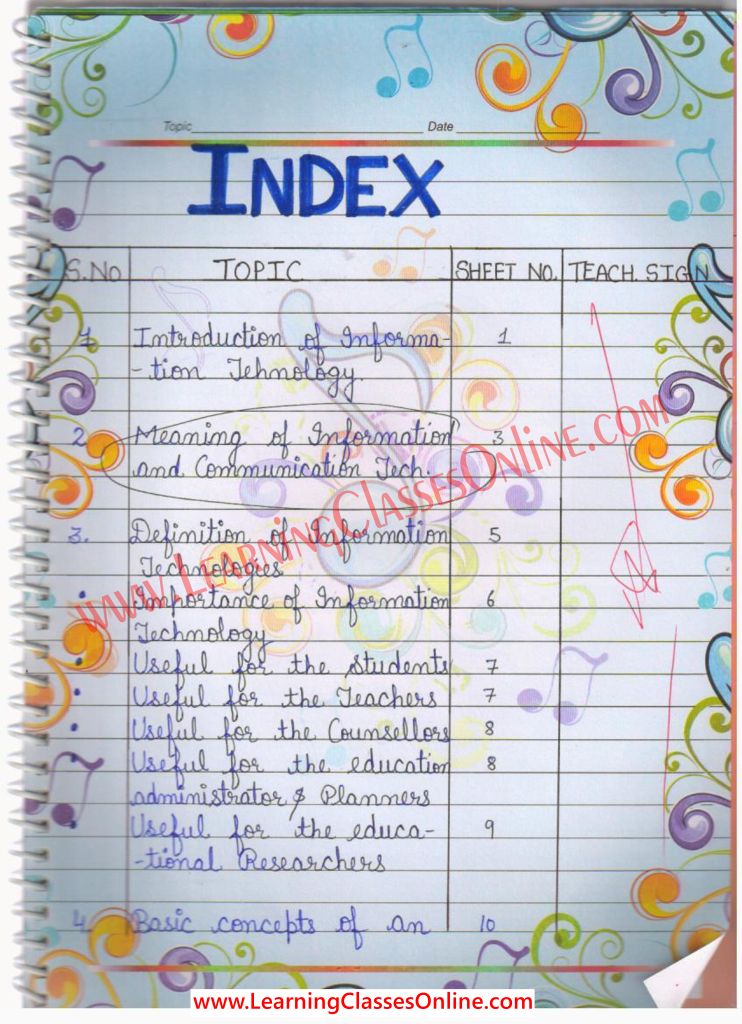 Topic Date
INDEX
S.NO TOPIC SHEET NO. TEACH. SIGN
1. Introduction of Informa- 1
-tion Tehnology
2. Meaning of Information 3
and Communication Tech.
3. Definition of Information 5
Technologies
Importance of Information 6
Technology
Useful for the students 7
Useful for the Teachers 7
Useful for the Counsellors 8
Useful for the education 8
administrator & Planners
Useful for the educa- 9
-tional Researchers
4. Basic concepts of an 10
www.LearningClassesOnline.com
www.LearningClassesOnline.com